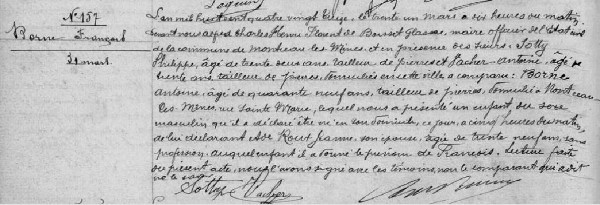 N° 157
Borne François
31 mars
L'an mil huit cent quatre vingt treize, le trente un mars à dix heures du matin,
devant nous Alfred Charles Henri Florent de Boisset Glassac, maire officier de l'état civil
de la commune de Montceau les Mines, et en présence des sieurs: Sotty
Philippe, âgé de trente deux ans, tailleur de pierres et Vacher Antoine, âgé de
trente ans, tailleur de pierres, domiciliés en cette ville a comparu: Borne
Antoine, âgé de quarante neuf ans, tailleur de pierres, domicilié à Montceau
les Mines, rue Sainte Marie, lequel nous a présenté un enfant du sexe
masculin qu'il a déclaré être né en son domicile, ce jour, à cinq heures du matin,
de lui déclarant et de Roux Jeanne, son épouse, âgée de trente neuf ans, sans
profession, auquel enfant il a donné le prénom de François. Lecture faite
du présent acte, nous l'avons signé avec les témoins, non le comparant qui a dit
ne le savoir.
Sotty Vacher